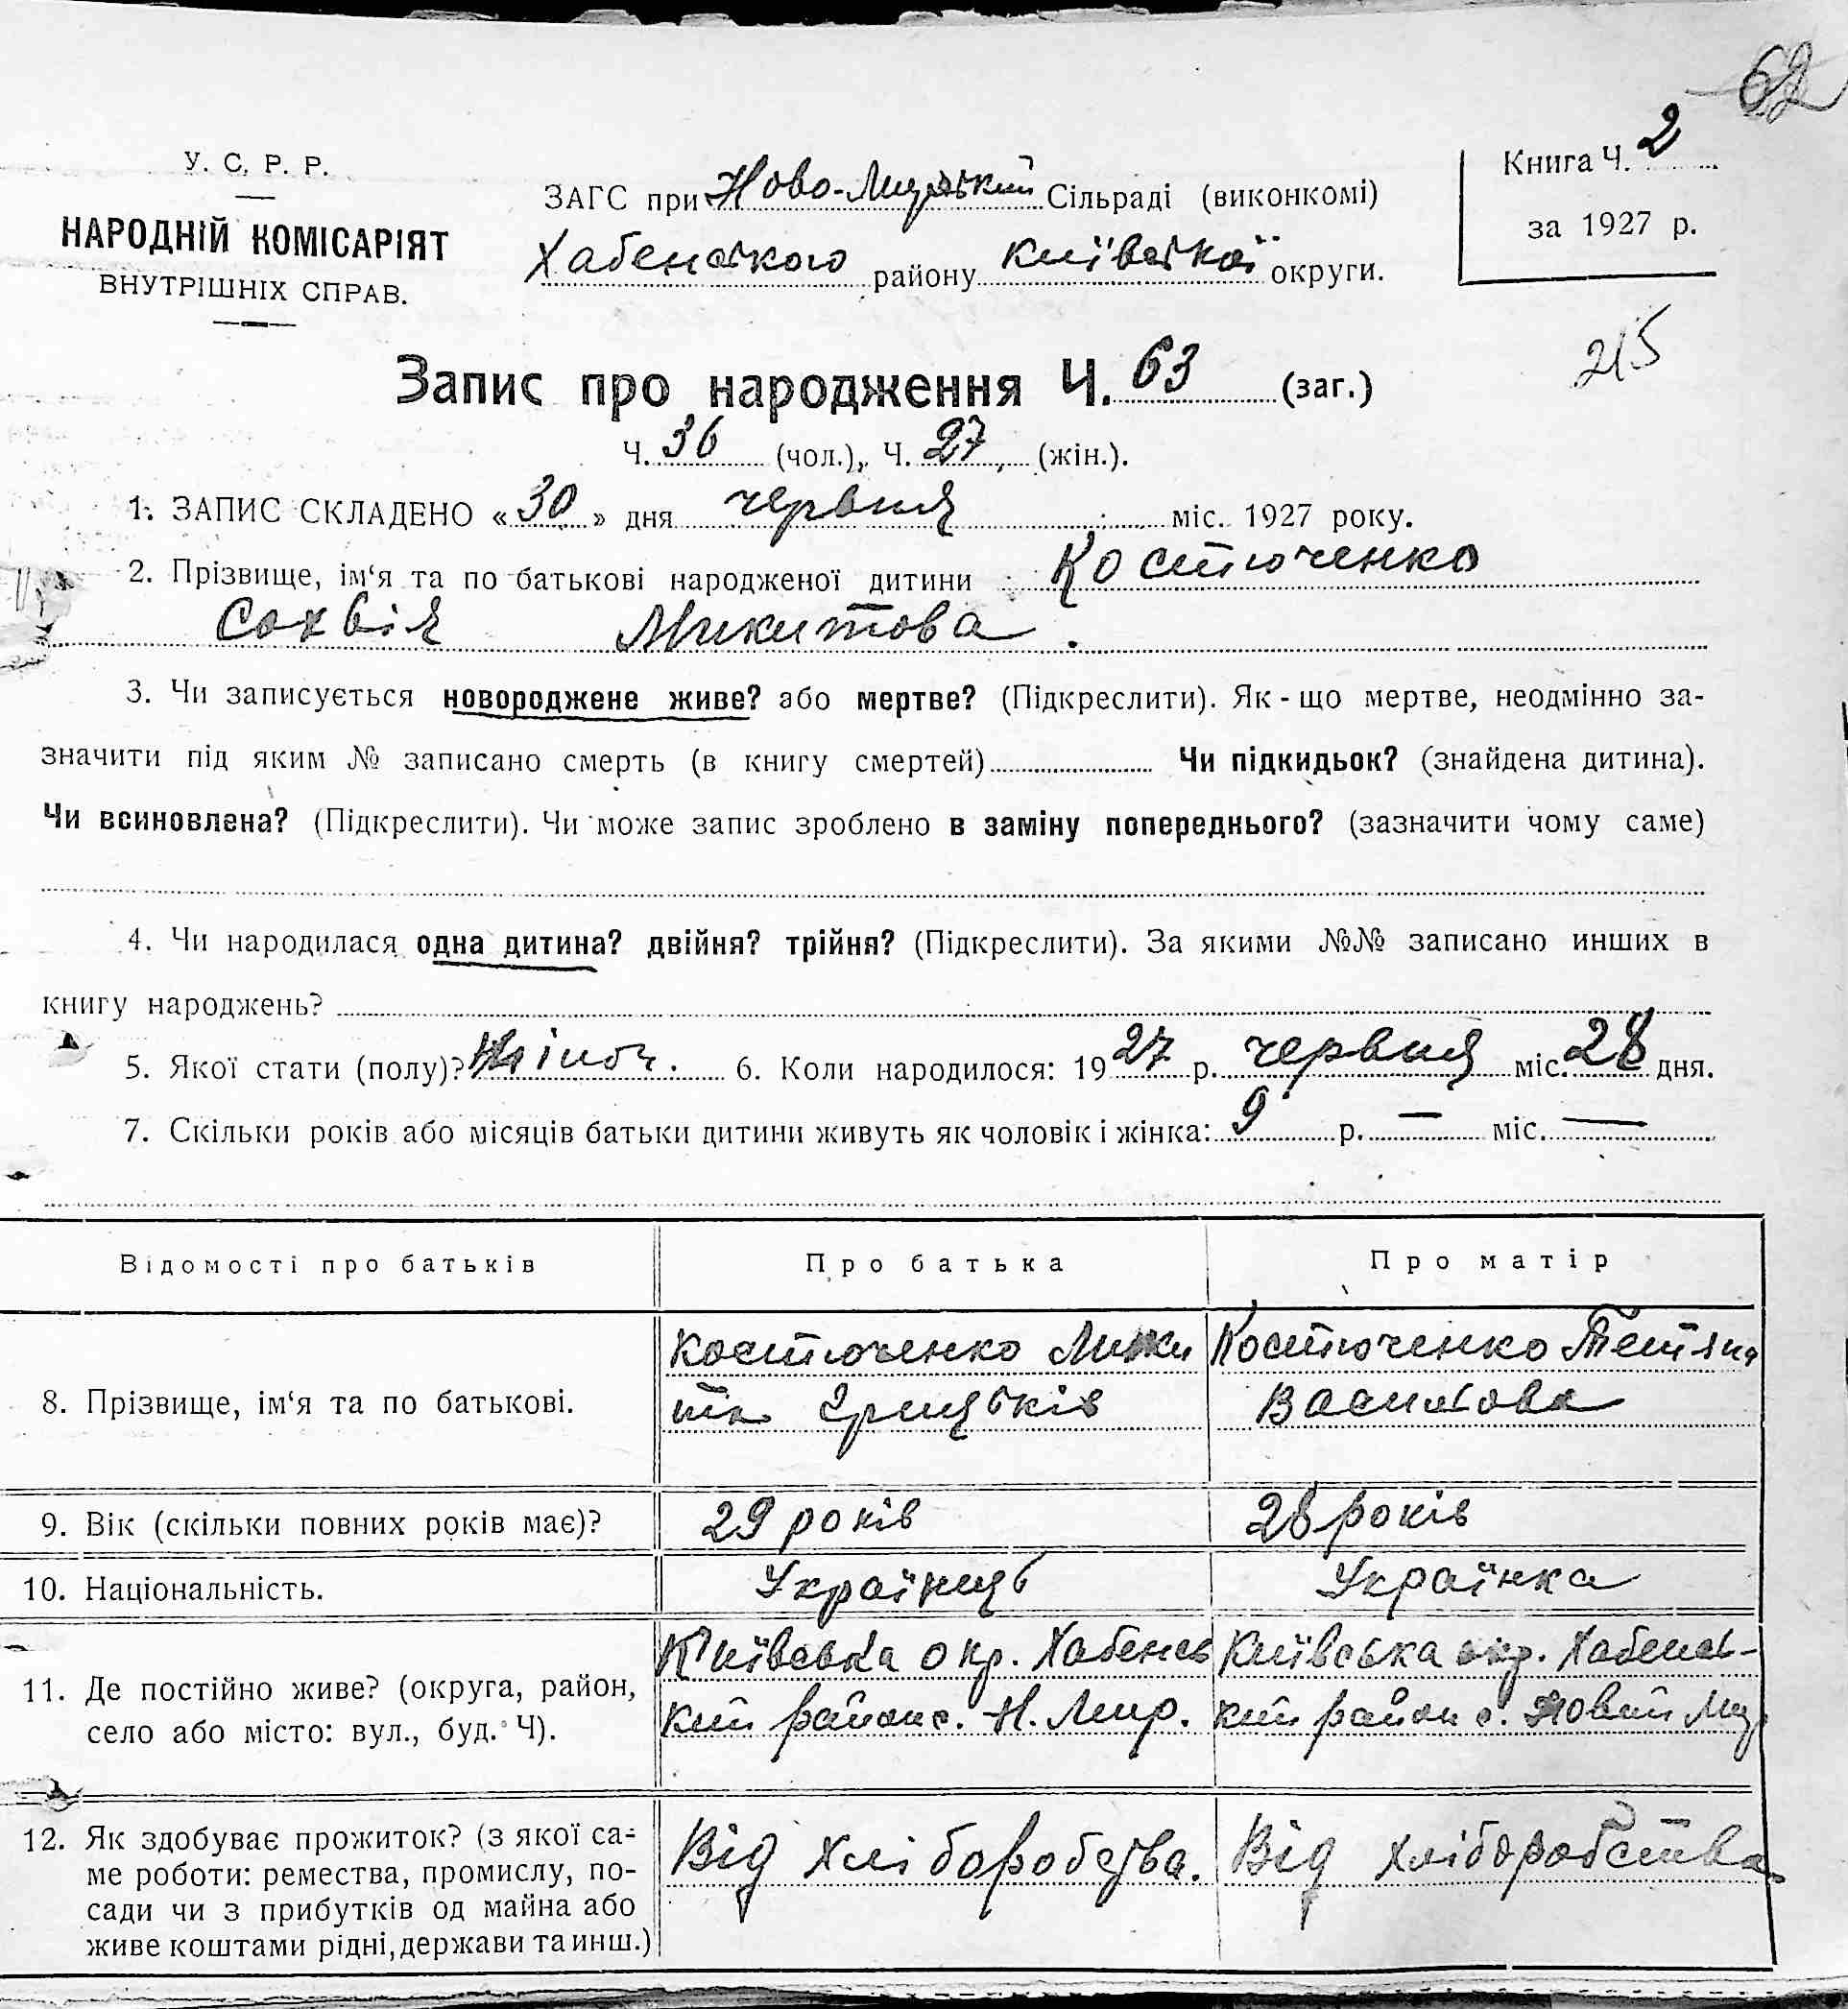 62
У. С. Р. Р.
НАРОДНІЙ КОМІСАРІЯТ
ВНУТРІШНІХ СПРАВ.
ЗАГС при Ново-Мирський Сільраді (виконкомі)
Хабенського району Київської округи.
Книга Ч. 2
за 1927 р.
215
Запис про народження Ч. 63 (заг.)
Ч. 36 (чол.), Ч. 27 (жін.).
1. ЗАПИС СКЛАДЕНО «30» дня червня міс. 1927 року.
2. Прізвище, ім‘я та по батькові народженої дитини Костюченко
Сохвія Микитова.
3. Чи записується новороджене живе? або мертве? (Підкреслити). Як-що мертве, неодмінно за-
значити під яким № записано смерть (в книгу смертей) Чи підкидьок? (знайдена дитина).
Чи всиновлена? (Підкреслити). Чи може запис зроблено в заміну попереднього? (зазначити чому саме)
4. Чи народилася одна дитина? двійня? трійня? (Підкреслити). За якими №№ записано инших в
книгу народжень?
5. Якої стати (полу)? Жіноч. 6. Коли народилося: 1927 р. червня міс. 28 дня.
7. Скільки років або місяців батьки дитини живуть як чоловік і жінка: 9 р. — міс. —
Відомості про батьків Про батька Про матір
8. Прізвище, ім‘я та по батькові.
Костюченко Мики
та Грицьків
Костюченко Тетяна
Василова
9. Вік (скільки повних років має)? 29 років 28 років
10. Національність. Українець Українка
11. Де постійно живе? (округа, район,
село або місто: вул., буд. Ч).
Київська окр. Хабенсь
кий район с. Н. Мир.
Київська окр. Хабенсь-
кий район с. Новий Мир
12. Як здобуває прожиток? (з якої са-
ме роботи: ремества, промислу, по-
сади чи з прибутків од майна або
живе коштами рідні, держави та инш.)
Від хліборобства.
Від хліборобства